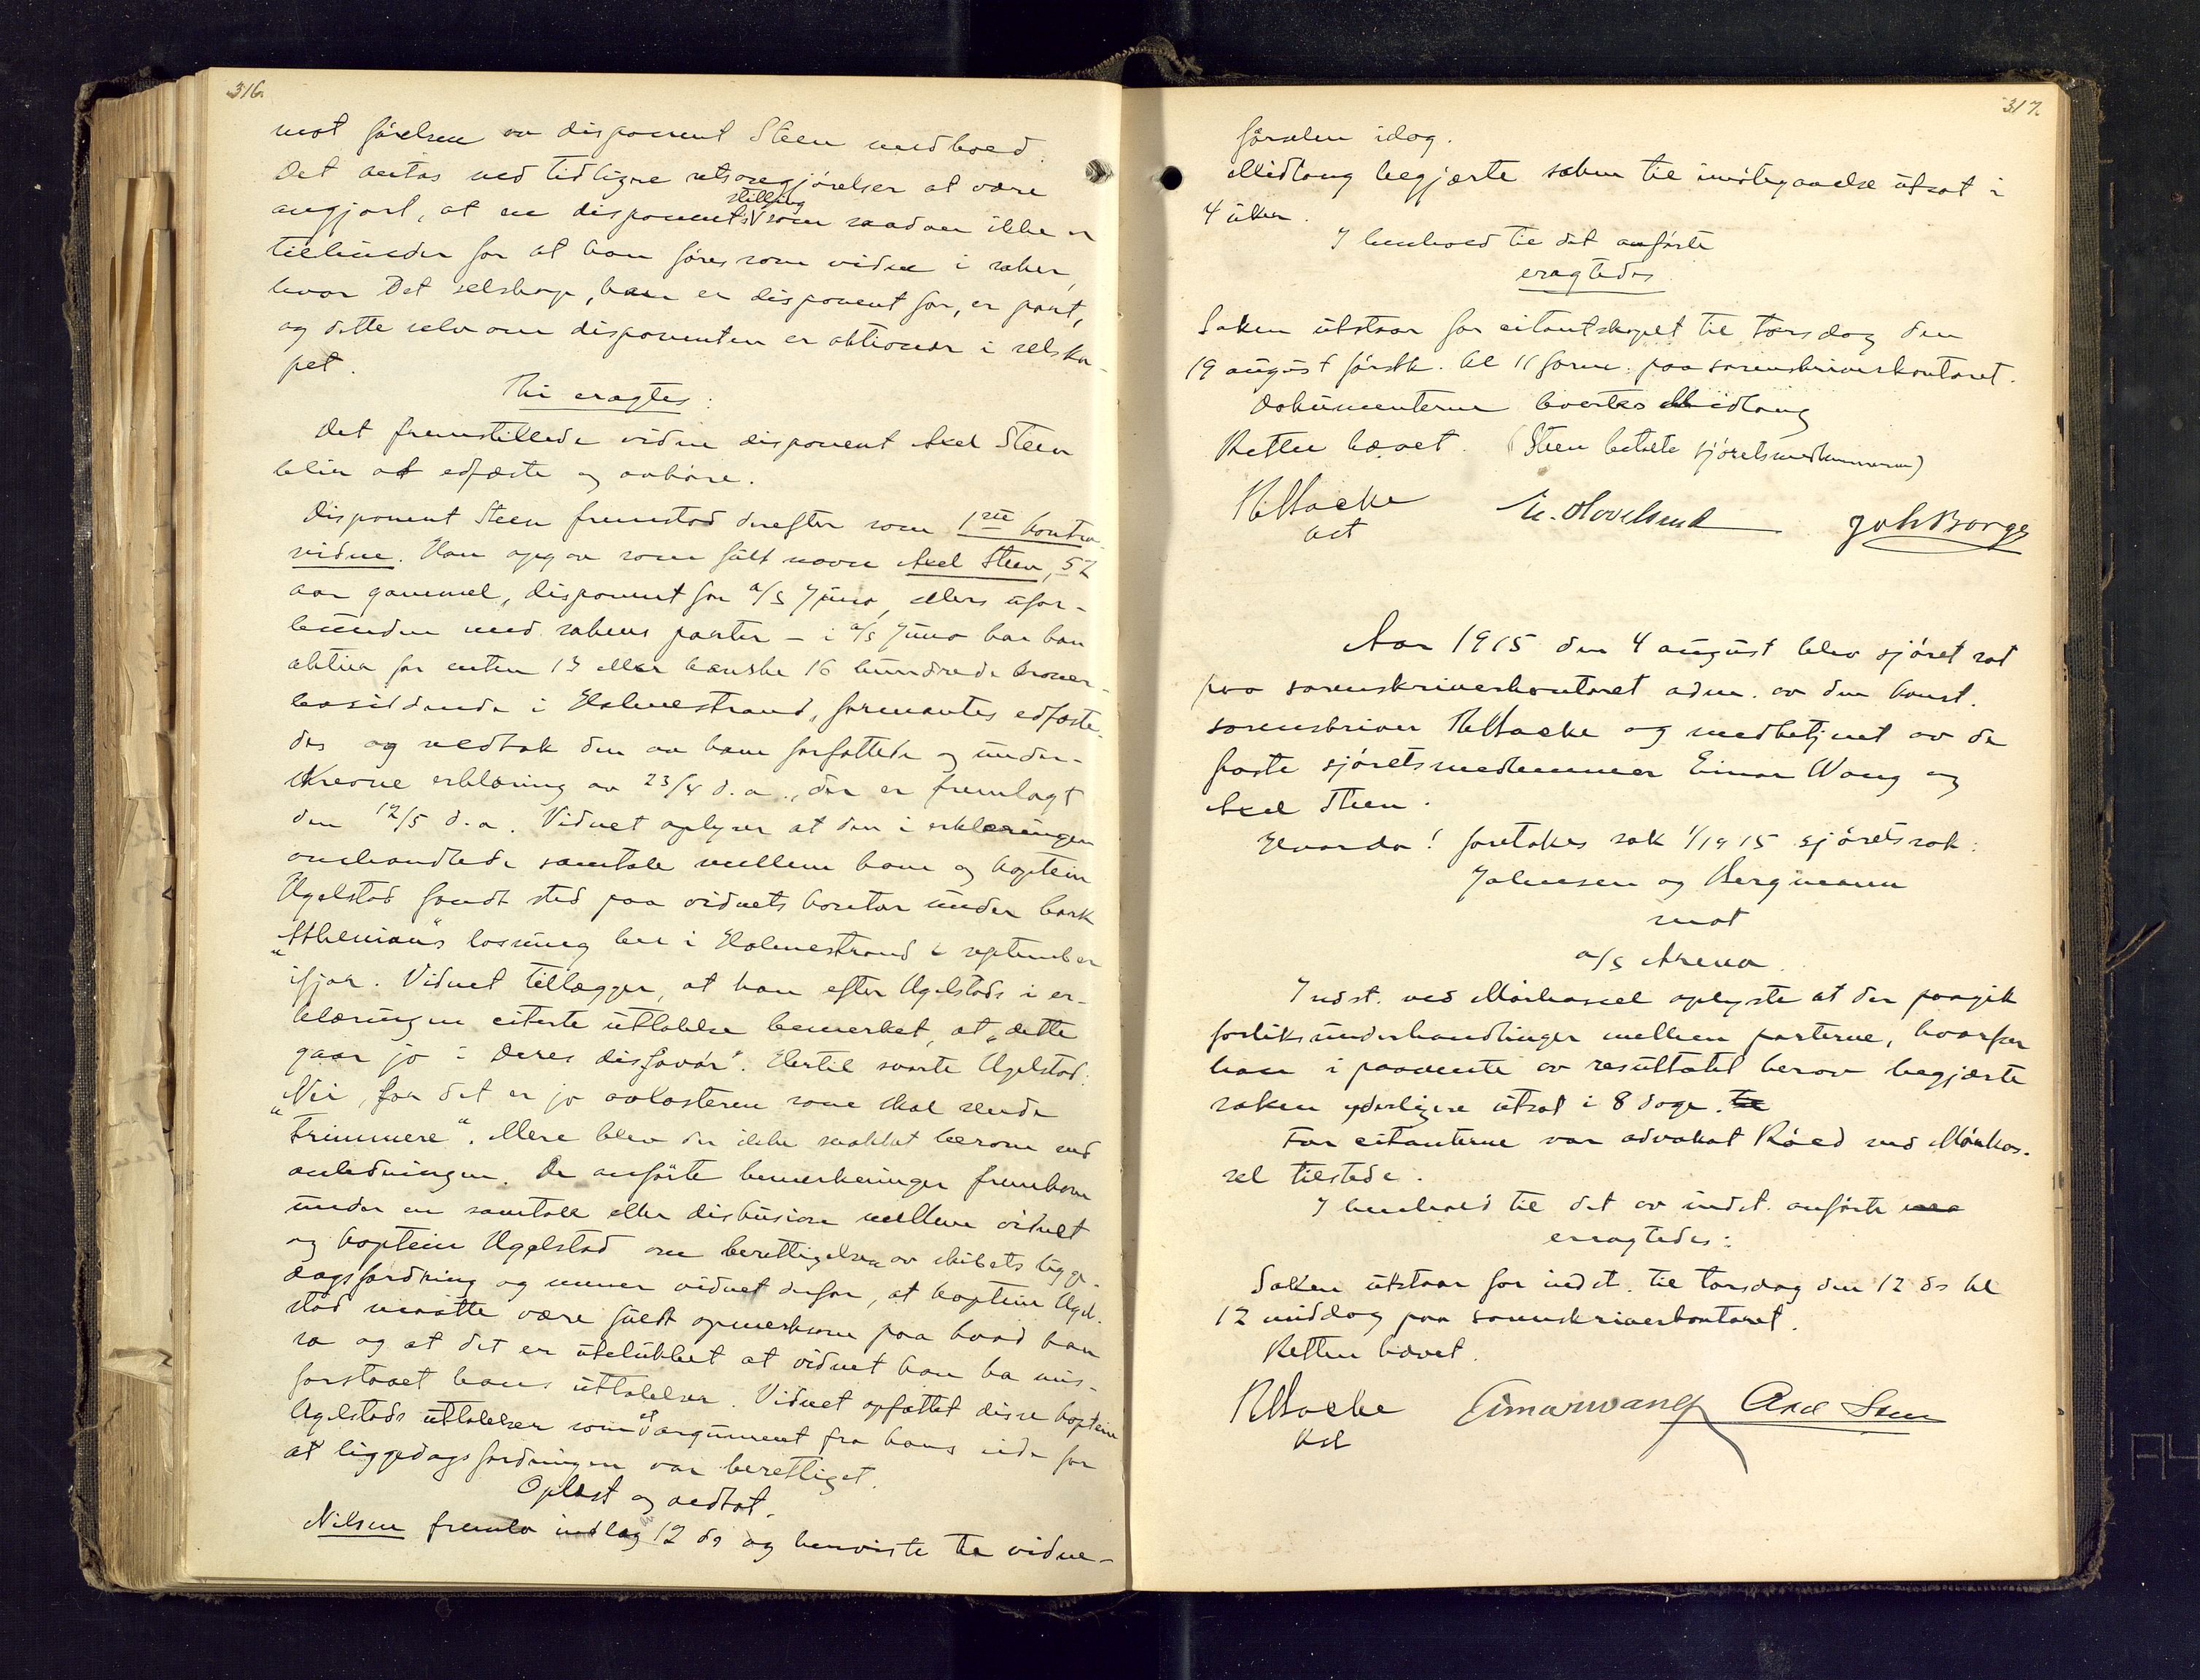 316.
mot førelsen av disponent Steen medhold.
Det antas ved tidligere retsavgjørelser at være
avgjort, at en disponents stilling som saadan ikke er
tilhinder for at han føres som vidne i saker,
hvor det selskap, han er disponent for, er part,
og dette selv om disponenten er aktionær i selska-
pet.
Thi eragtes:
Det fremstillede vidne disponent Axel Steen
blir at edfæste og avhøre.
Disponent Steen fremstod derefter som 1ste kontra-
vidne. Han opgav som fuldt navn Axel Steen, 52
aar gammel, disponent for a/s Juno, ellers ufor-
bunden med sakens parter – i a/s Juno har han
aktier for enten 13 eller kanske 16 hundrede kroner –
bosiddende i Holmestrand, formantes edfæste-
des og vedtok den av ham forfattede og under-
skrevne erklæring av 23/4 d.a., der er fremlagt
den 12/5 d.a. Vidnet oplyser at den i erklæringen
omhandlede samtale mellem ham og kaptein
Agelstad fandt sted paa vidnets kontor under bark
"Athenian"s losning her i Holmestrand i september
ifjor. Vidnet tillægger, at han efter Agelstads i er-
klæringen citerte uttalelse bemerket, at "dette
gaar jo i Deres disfavør". Hertil svarte Agelstad:
"Nei, for det er jo avlasteren som skal sende
trimmere". Mere blev der ikke snakket herom ved
anledningen. De anførte bemerkninger fremkom
under en samtale eller diskusion mellem vidnet
og kaptein Agelstad om berettigelsen av skibets ligge-
dagsfordring og mener vidnet derfor, at kaptein Agel-
stad maatte være fuldt opmerksom paa hvad han
sa og at det er utelukket at vidnet kan ha mis-
forstaaet hans uttalelser. Vidnet opfattet disse kaptein
Agelstads uttalelser som et argument fra hans side for
at liggedagsfordringen var berettiget.
Oplæst og vedtat.
Nilsen fremla indlæg 12 ds og henviste til vidne-
317.
førselen idag.
Midtang begjærte saken til imøtegaaelse utsat i
4 uker.
I henhold til det anførte
eragtedes
Saken utstaar for citantskapet til torsdag den
19 august førstk. kl 11 form. paa sorenskriverkontoret.
Dokumenterne leveres Midtang
Retten hævet. (Steen betalte sjøretsmedlemmerne)
R Macke
cst
M. Hovelsrud
Joh Borge
Aar 1915 den 4 august blev sjøret sat
paa sorenskriverkontoret adm. av den konst.
sorenskriver R Macke og medbetjent av de
faste sjøretsmedlemmer Einar Wang og
Axel Steen.
Hvorda! foretakes sak 1/1915 sjøretssak:
Johnsen og Bergmann
mot
a/s Arena.
Indst. ved Mørkassel oplyste at der paagik
forliksunderhandlinger mellem parterne, hvorfor
han i paavente av resultatet herav begjærte
saken yderligere utsat i 8 dage.
For citanterne var advokat Röed ved Mørkas-
sel tilstede.
I henhold til det av indst. anførte
eragtedes:
Saken utstaar for indst. til torsdag den 12 ds kl
12 middag paa sorenskriverkontoret.
Retten hævet.
R Macke
kst
Einar Wang
Axel Steen